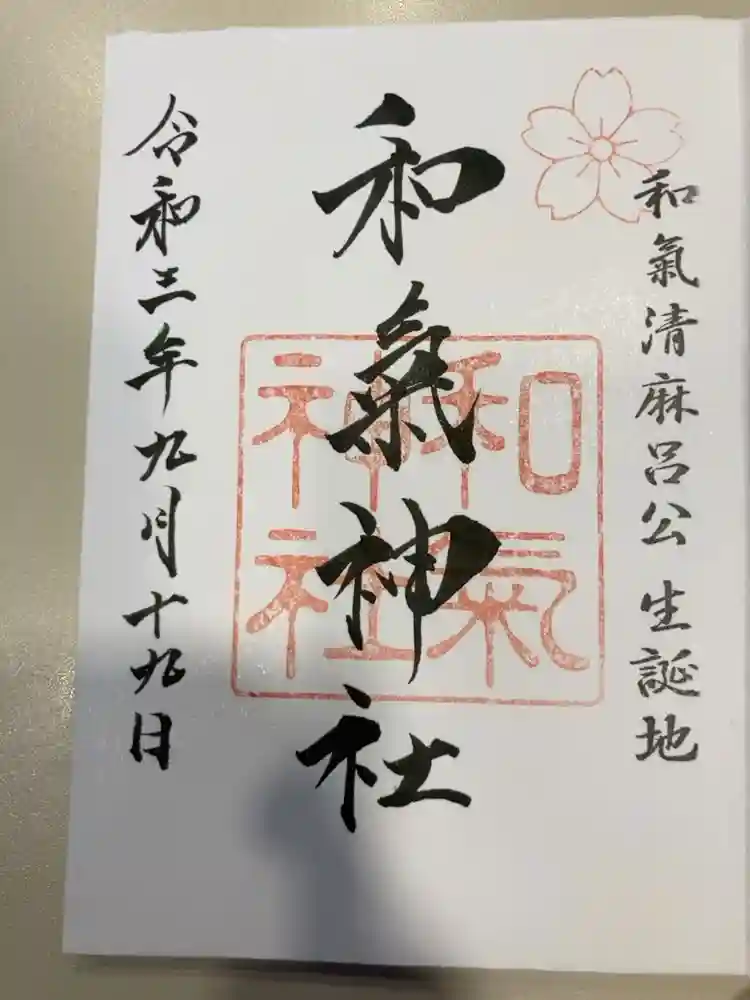 和氣清麻呂公 生誕地
和氣神社
和氣神社
令和三年九月十九日